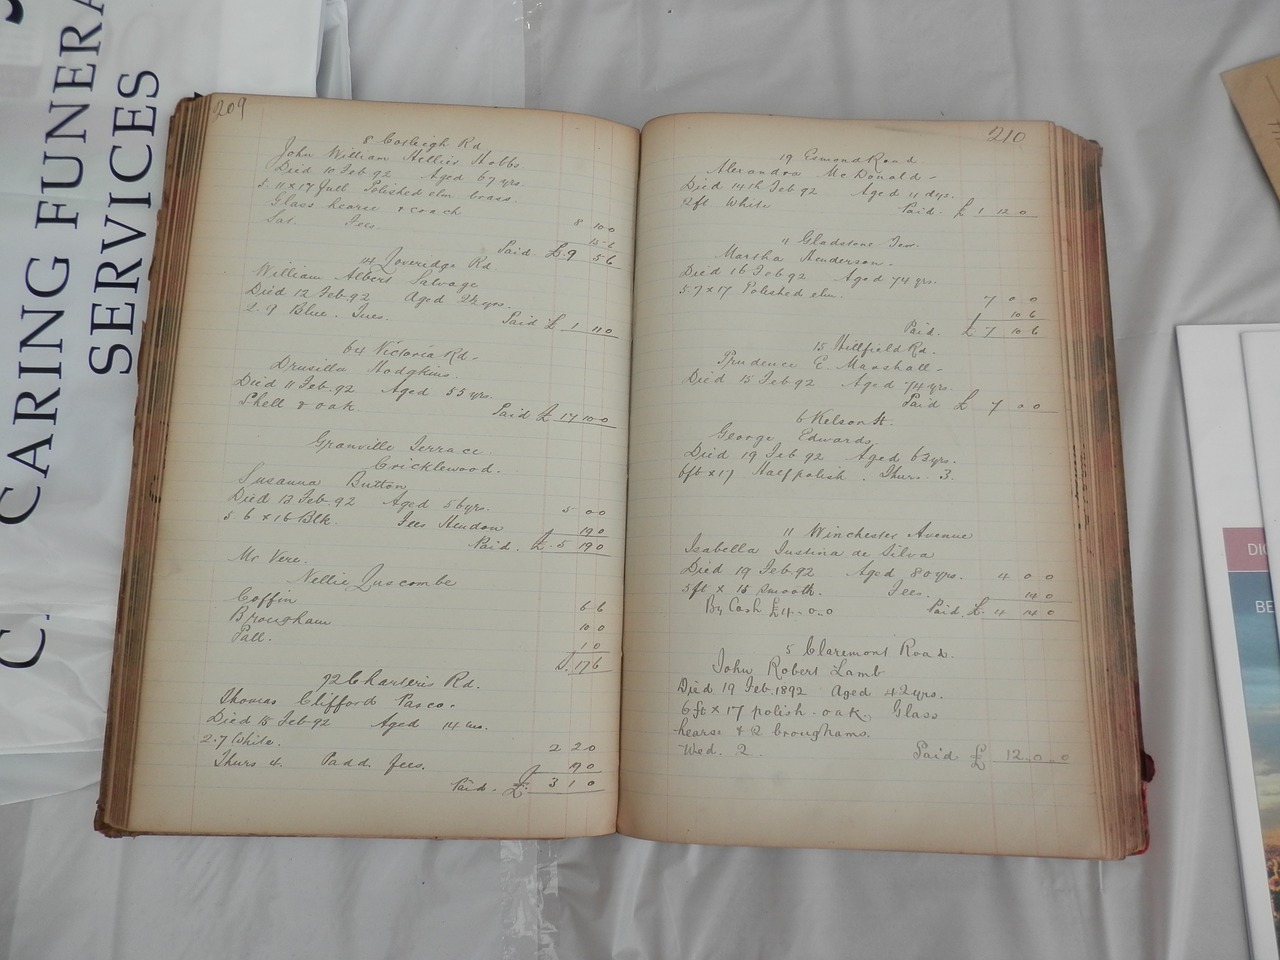 CARING FUNERAL
SERVICES
209
8 Cotleigh Rd
John William Hellier Hobbs
Died 10 Feb 92 Aged 67 yrs.
5.11 x 17 full Polished elm brass.
Glass hearse & coach 8 10 0
Sat. Fees. 15 6
Paid £ 9 5 6
14 Loveridge Rd
William Albert Salvage
Died 12 Feb. 92 Aged
2.9 Blue. Tues. Paid £ 1 11 0
64 Victoria Rd.
Drusilla Hodgkins.
Died 11 Feb. 92 Aged 55 yrs.
Shell & oak Paid £ 17 10 0
Granville Terrace.
Cricklewood.
Susanna Button
Died 13 Feb. 92 Aged 56 yrs. 5 0 0
5 6 x 16 Blk. Fees Hendon 19 0
Paid. £ 5 19 0
Mr Vere.
Nellie Luscombe
Coffin 6 6
Brougham 10 0
Pall. 1 0
17 6
92 Charteris Rd.
Thomas Clifford Pascoe.
Died 15 Feb 92 Aged 14 ms.
2.7 White. 2 2 0
Thurs 4. Padd. fees. 19 0
Paid. £ 3 1 0
210
19 Esmond Road
Alexandra McDonald.
Died 14th Feb 92 Aged 11 dys.
2ft White Paid. £ 1 12 0
4 Gladstone Terr.
Martha Henderson.
Died 16 Feb 92 Aged 74 yrs.
5.7 x 17 Polished elm. 7 0 0
10 6
Paid. £ 7 10 6
15 Hillfield Rd.
Prudence E. Marshall.
Died 15 Feb 92 Aged 74 yrs.
Paid £ 7 0 0
6 Nelson St.
George Edwards,
Died 19 Feb 92 Aged 63 yrs.
6ft x 17 Half polish. Thurs. 3.
11 Winchester Avenue
Isabella Justina de Silva
Died 19 Feb. 92 Aged 80 yrs. 4 0 0
5ft x 15 smooth. Fees. 14 0
By Cash £4. 0. 0 Paid £. 4 14 0
5 Claremont Road.
John Robert Lamb
Died 19 Feb. 1892 Aged 42 yrs.
6ft x 17 polish. oak. Glass
hearse & 2 broughams.
Wed. 2. Paid £ 12. 0. 0